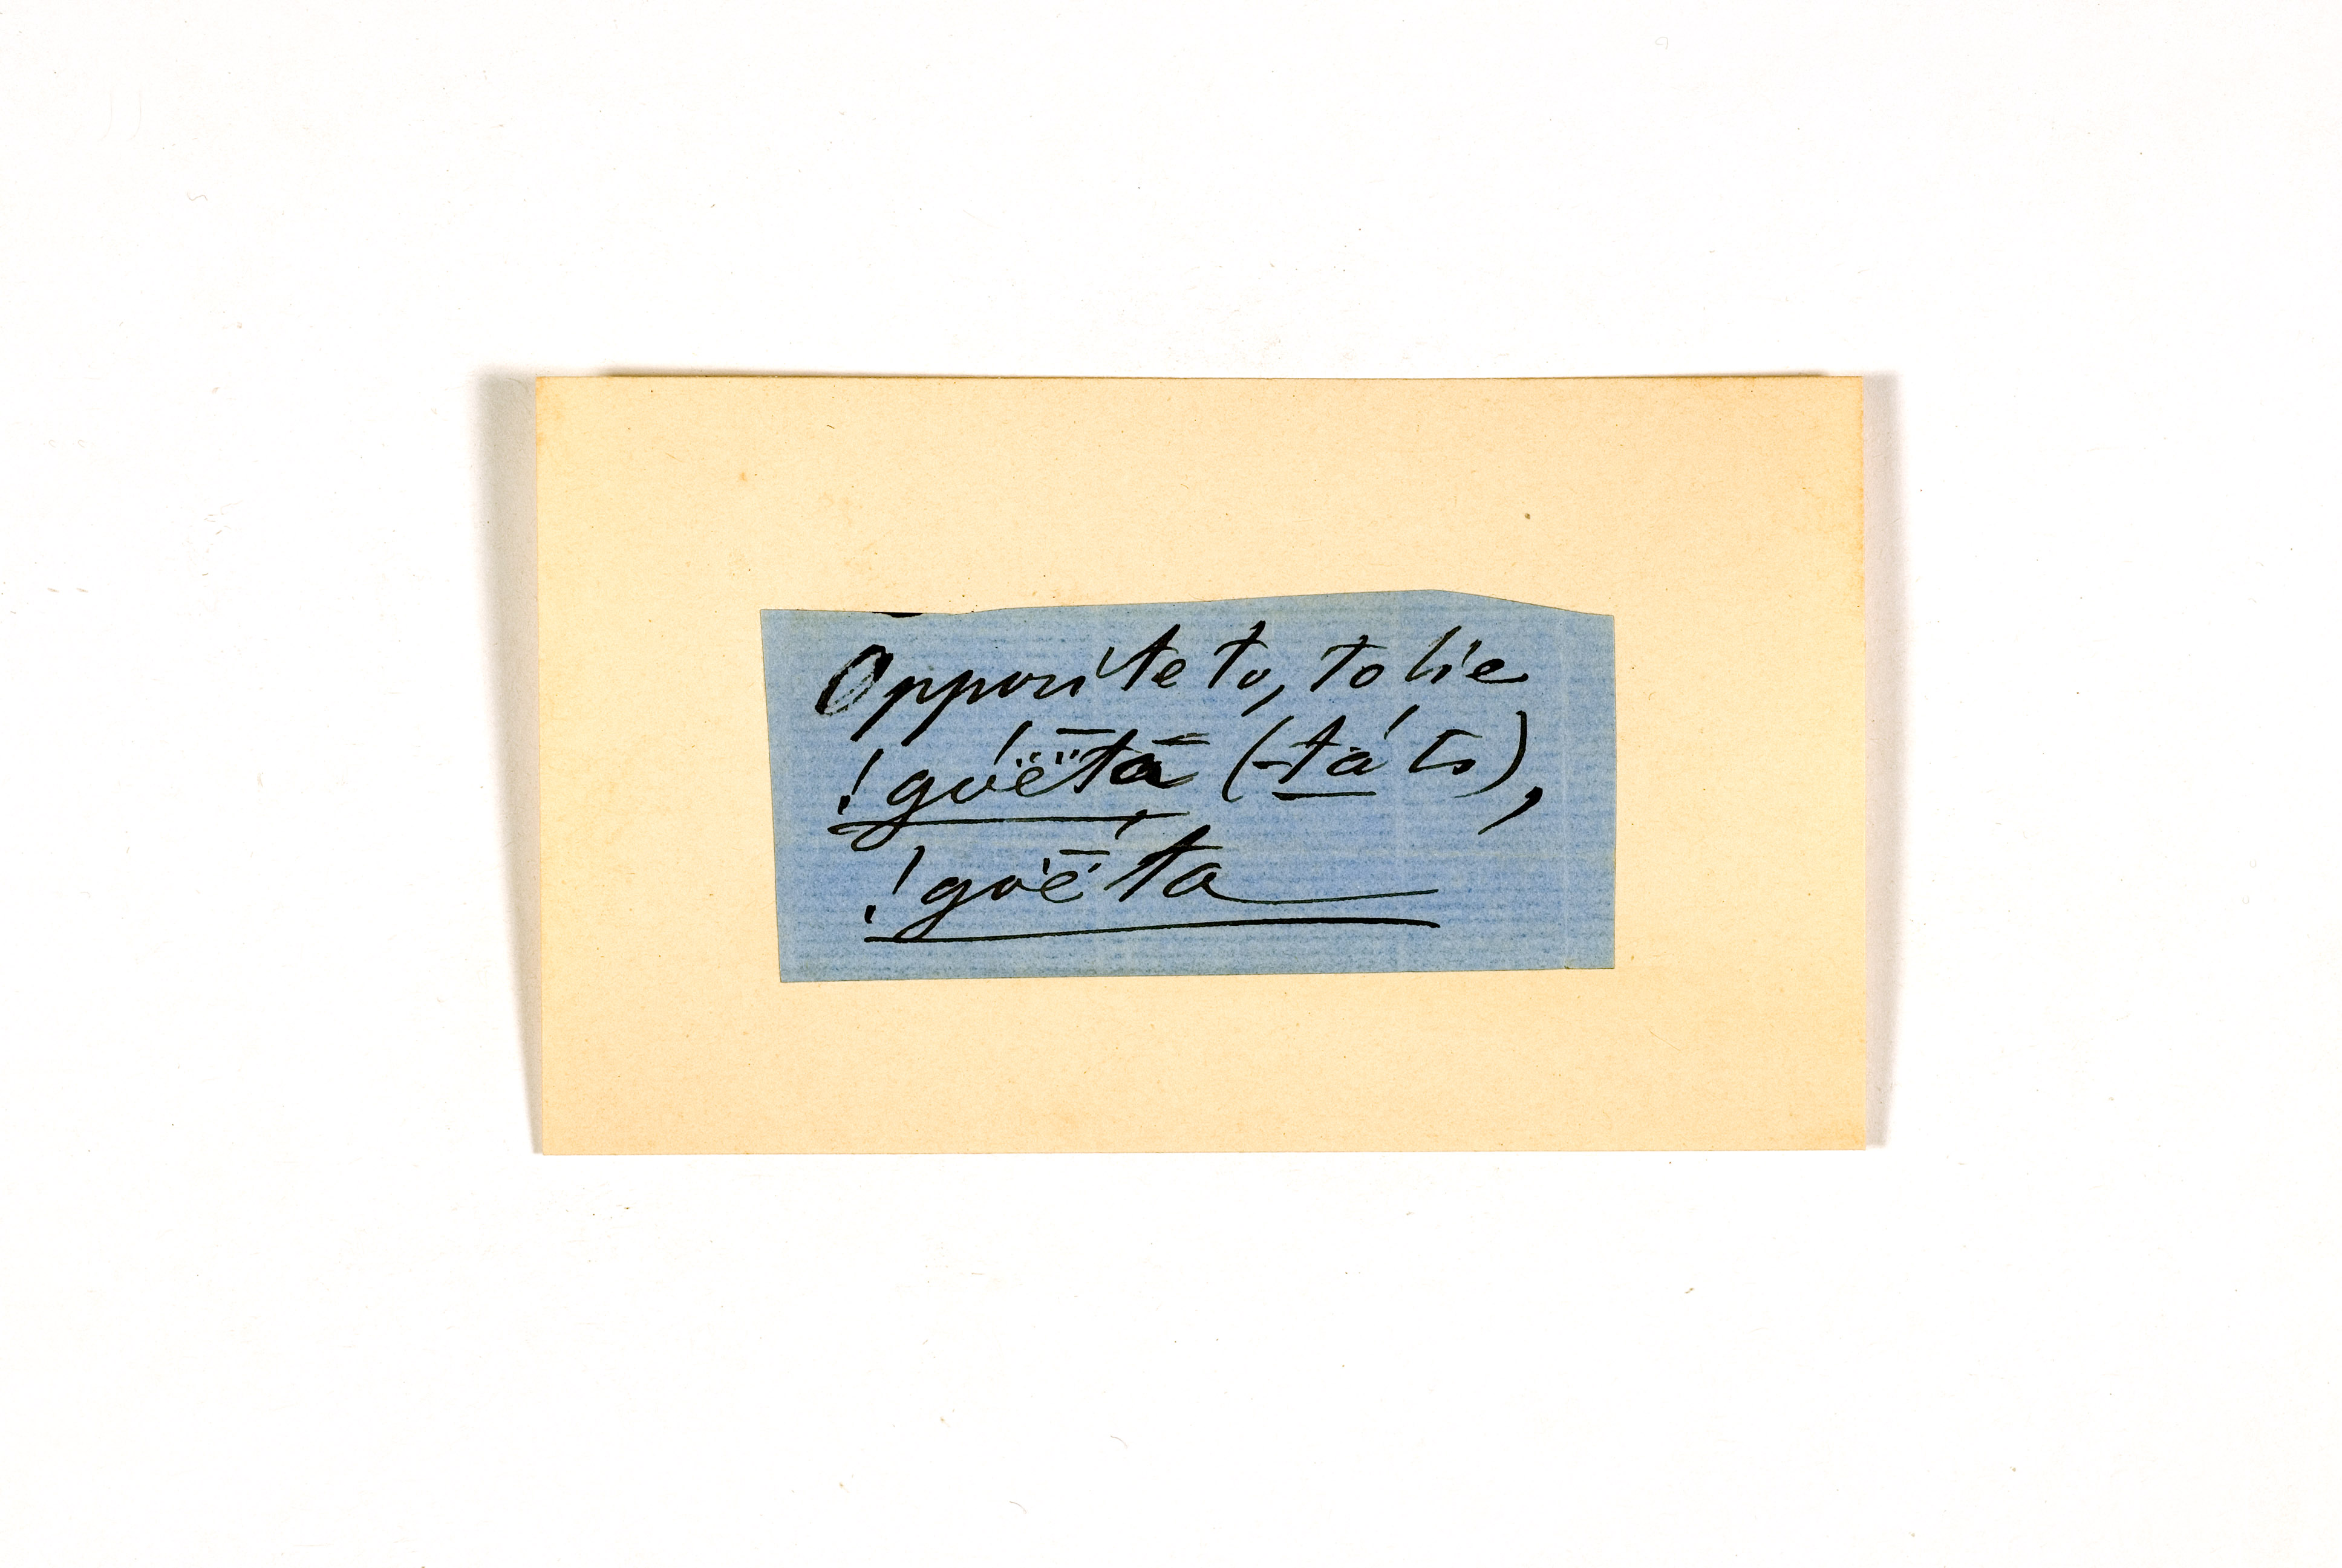 Opposite to, to lie
!gúï̈ë̄tā (-tá ts),
!guē̈ta